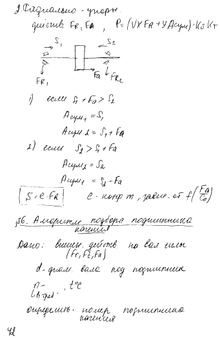 Радиально-упорн.
действ FR, FA, P=(VXFR+YAсум)·KБ·KT
S₁ S₂
FR₁ FA FR₂
1) если S₁+Fa>S₂
Aсум₁=S₁
Aсум.2=S₁+FA
2) если S₂>S₁+Fa
Aсум₂=S₂
Aсум₁=S₂-Fa
S=e·FR e- завис. от f(FA/C₀)
§6. Алгоритм подбора подшипника
качения
Дано: внешн. действ на вал силы
(Fr, Ft, Fa)
d-диам вала под подшипник
n-
t°C
определить номер подшипника
качения